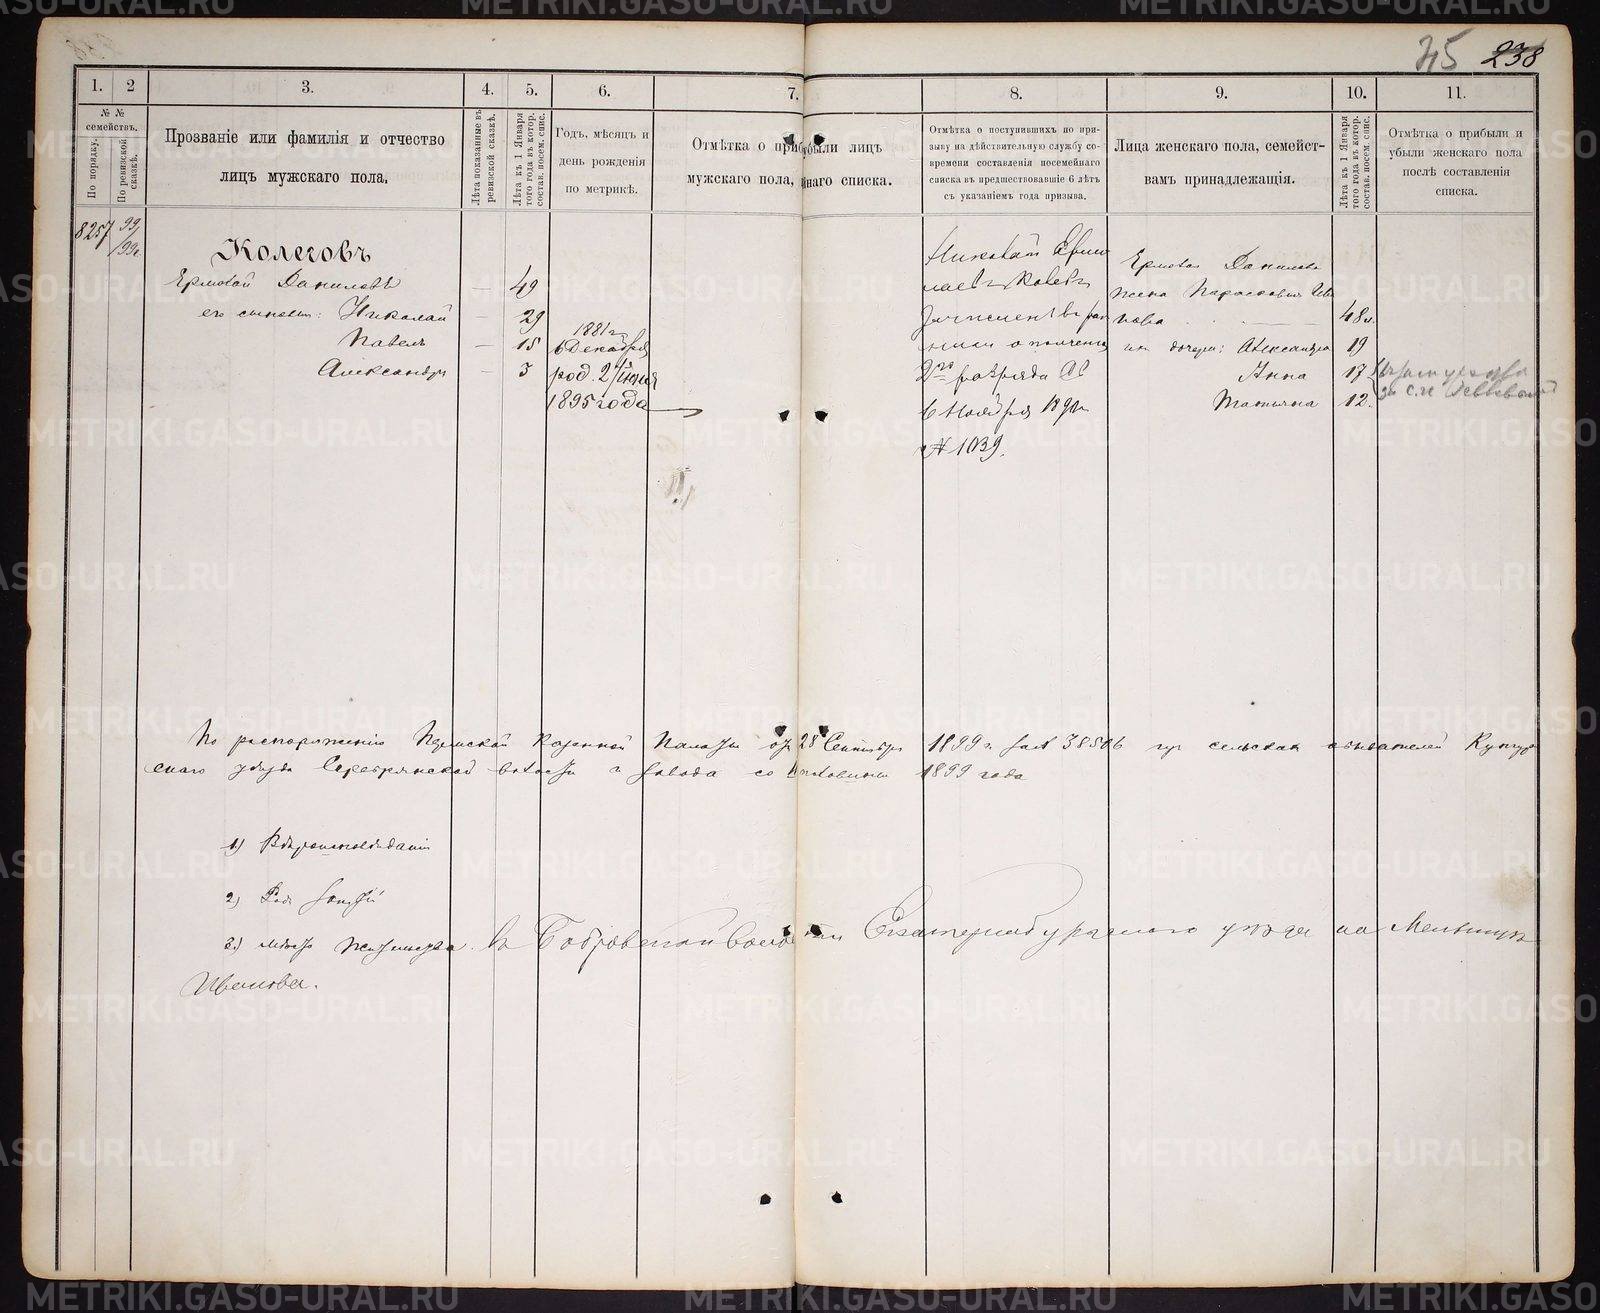 45 238
1. 2 3. 4. 5. 6. 7. 8. 9. 10. 11.
№ № семействъ.
По порядку.
По ревизской сказкѣ.
Прозваніе или фамилія и отчество
лицъ мужскаго пола.
Лѣта показанные въ ревизской сказкѣ.
Лѣта къ 1 Января того года въ котор. состав. посем. спис.
Годъ, мѣсяцъ и
день рожденія
по метрикѣ.
Отмѣтка о прибыли лицъ
мужскаго пола, наго списка.
Отмѣтка о поступившихъ по при-
зыву на дѣйствительную службу со-
времени составленія посемейнаго
списка въ предшествовавшіе 6 лѣтъ
съ указаніемъ года призыва.
Лица женскаго пола, семейст-
вамъ принадлежащія.
Лѣта къ 1 Января того года въ котор. состав. посем. спис.
Отмѣтка о прибыли и
убыли женскаго пола
послѣ составленія
списка.
8257 99/
Колеговъ
Ермолай Даниловъ — 49
его сыновья: Николай — 29
Павелъ — 15
Александръ — 3
1881 г.
6 Декабря
род. 2 Іюня
1895 года
Николай Ермо
лаевъ
зачисленъ въ рат
ники ополченія
2го разряда
6 Ноября
№ 1039.
Ермолая Данилова
жена Парасковья Ива
нова 48 л.
их дочери: Александра 19
Анна 17
Татьяна 12.
По распоряженію Пермской Казенной Палаты от 28 Сентября 1899 г. за № 38506 сельских обывателей Кунгур
скаго уѣзда Серебрянской волости и завода со половины 1899 года
1) Вѣроисповѣданія
2) Род занятій
3) мѣсто жительства. въ Бобровской волости Екатеринбургскаго уѣзда на Мельницѣ
Иванова.
METRIKI.GASO-URAL.RU